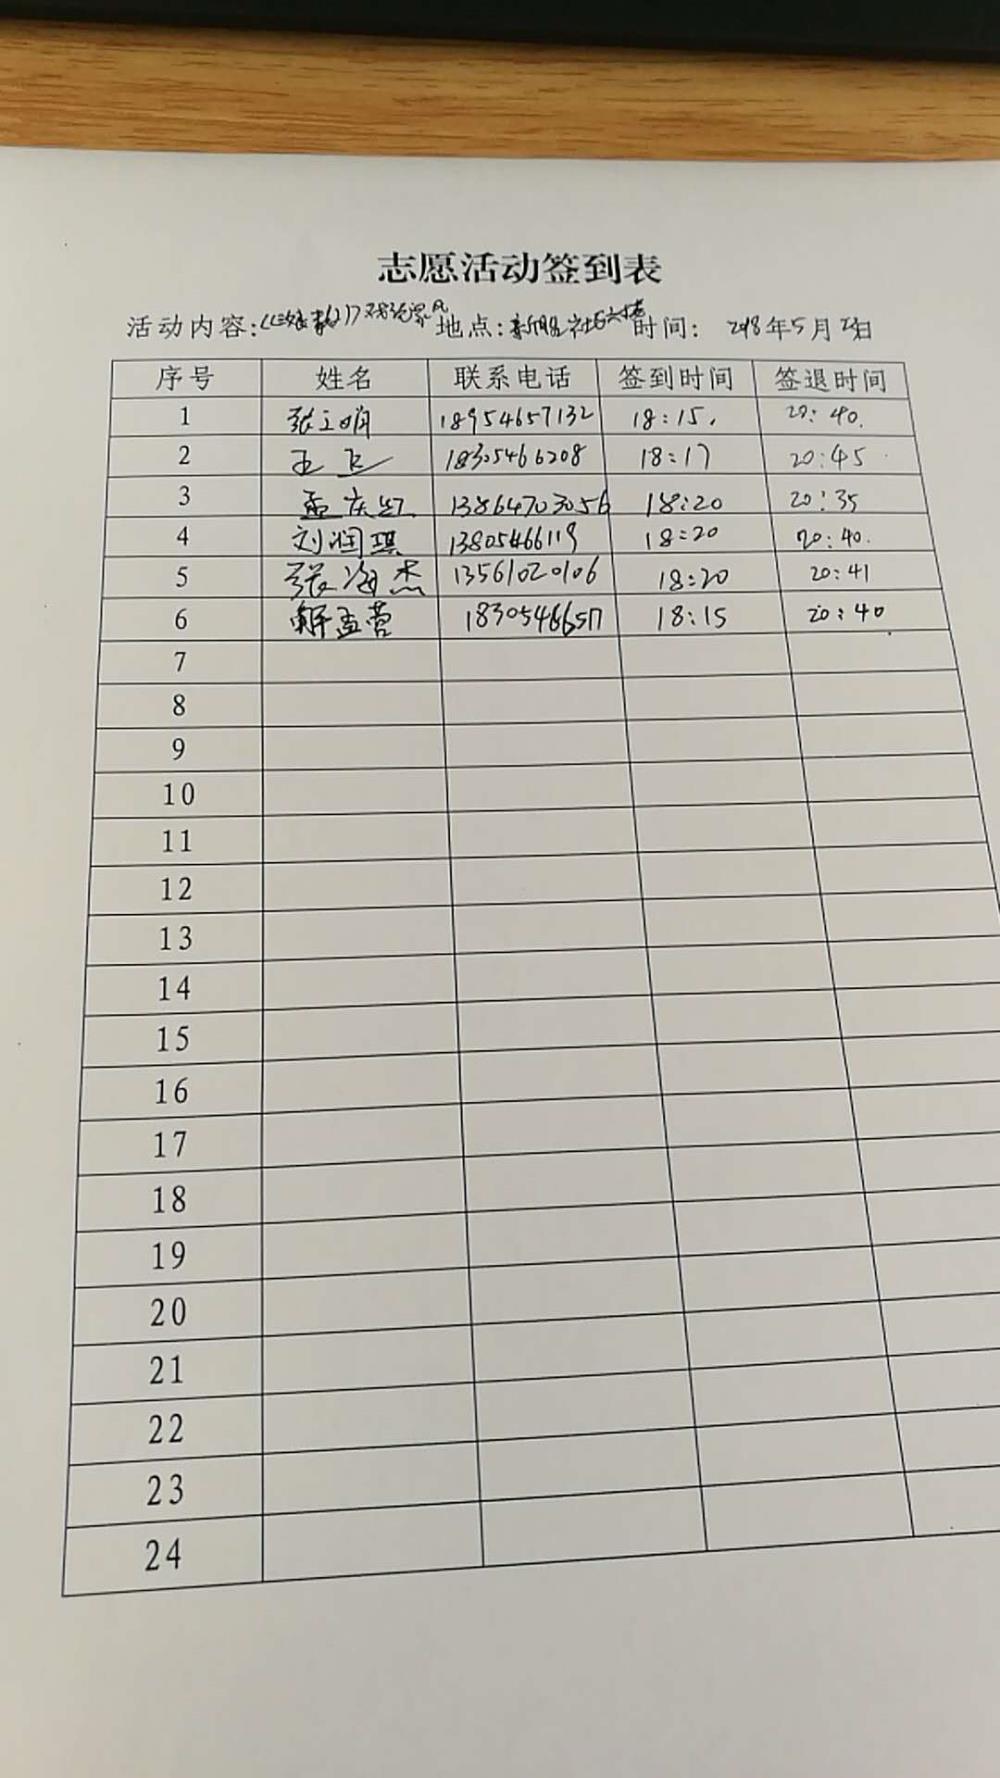 志愿活动签到表
活动内容: 地点: 时间: 2018年5月 日
序号 姓名 联系电话 签到时间 签退时间
1 张立明 18954657132 18:15. 20:40.
2 王卫 18305466208 18:17 20:45
3 孟庆红 13864703056 18:20 20:35
4 刘润琪 13805466119 18:20 20:40.
5 张海杰 13561020106 18:20 20:41
6 解孟营 18305466517 18:15 20:40
7
8
9
10
11
12
13
14
15
16
17
18
19
20
21
22
23
24